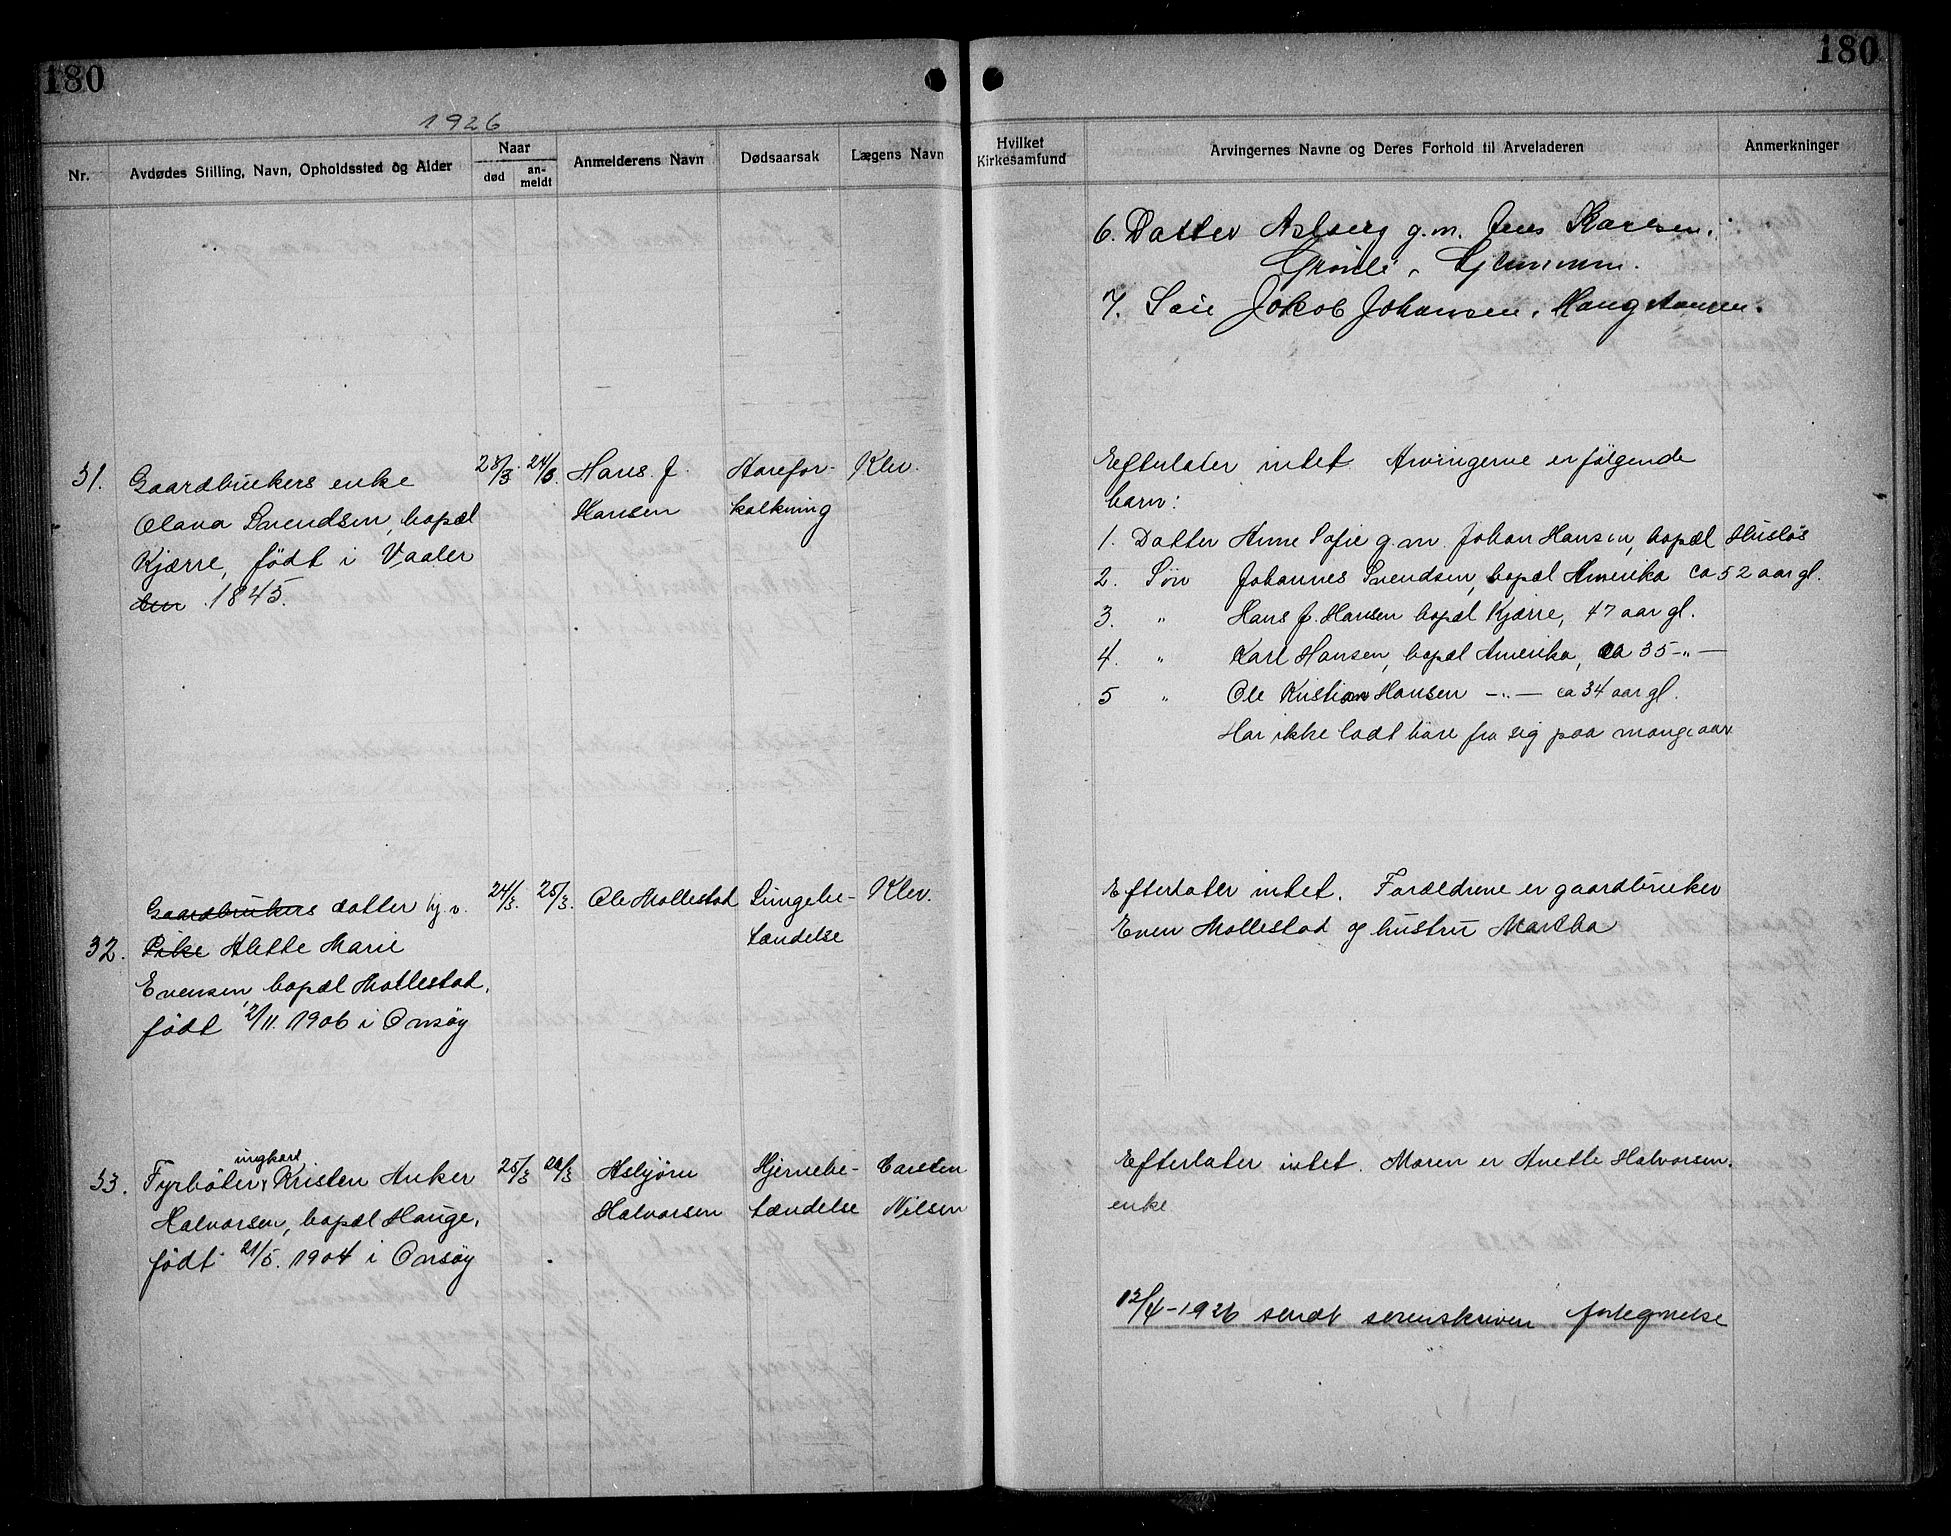 180
180
1926
Nr.
Avdødes Stilling, Navn, Opholdssted og Alder
Naar
død
an-
meldt
Anmelderens Navn
Dødsaarsak
Lægens Navn
Hvilket
Kirkesamfund
Arvingernes Navne og Deres Forhold til Arveladeren
Anmerkninger
6. Datter Aslaug g.m. Jens Karlsen,
Grønli, Glemmen.
7. Søn Jakob Johansen, Haugstenen.
31.
Gaardbrukers enke
Olava Svendsen, bopæl
Kjærre, født i Vaaler
den 1845.
23/3
24/3.
Hans J.
Hansen
Aarefor-
kalkning
Klev.
Efterlater intet. Arvingerne er følgende
barn:
1. Datter Anne Sofie g.m. Johan Hansen, bopæl Husløs
2. Søn Johannes Svendsen, bopæl Amerika ca 52 aar gl.
3. " Hans J. Hansen bopæl Kjærre, 47 aar gl.
4. " Karl Hansen, bopæl Amerika, ca 35 -"-
5 " Ole Kristian Hansen -"- ca 34 aar gl.
Har ikke ladt høre fra sig paa mange aar
32.
Gaardbrukers datter hj.v.
Pike Alette Marie
Evensen, bopæl Mollestad,
født 2/11. 1906 i Onsøy
24/3.
25/3.
Ole Mollestad
Lungebe-
tændelse
Klev.
Efterlater intet. Forældrene er gaardbruker
Even Mollestad og hustru Martha
33.
Fyrbøter, ungkarl Kristen Anker
Halvorsen, bopæl Hauge,
født 21/5. 1904 i Onsøy
25/3
26/3
Asbjørn
Halvorsen
Hjernebe-
tændelse
Carsten
Nilsen
Efterlater intet. Moren er Anette Halvorsen.
enke
12/4-1926 sendt sorenskriven fortegnelse